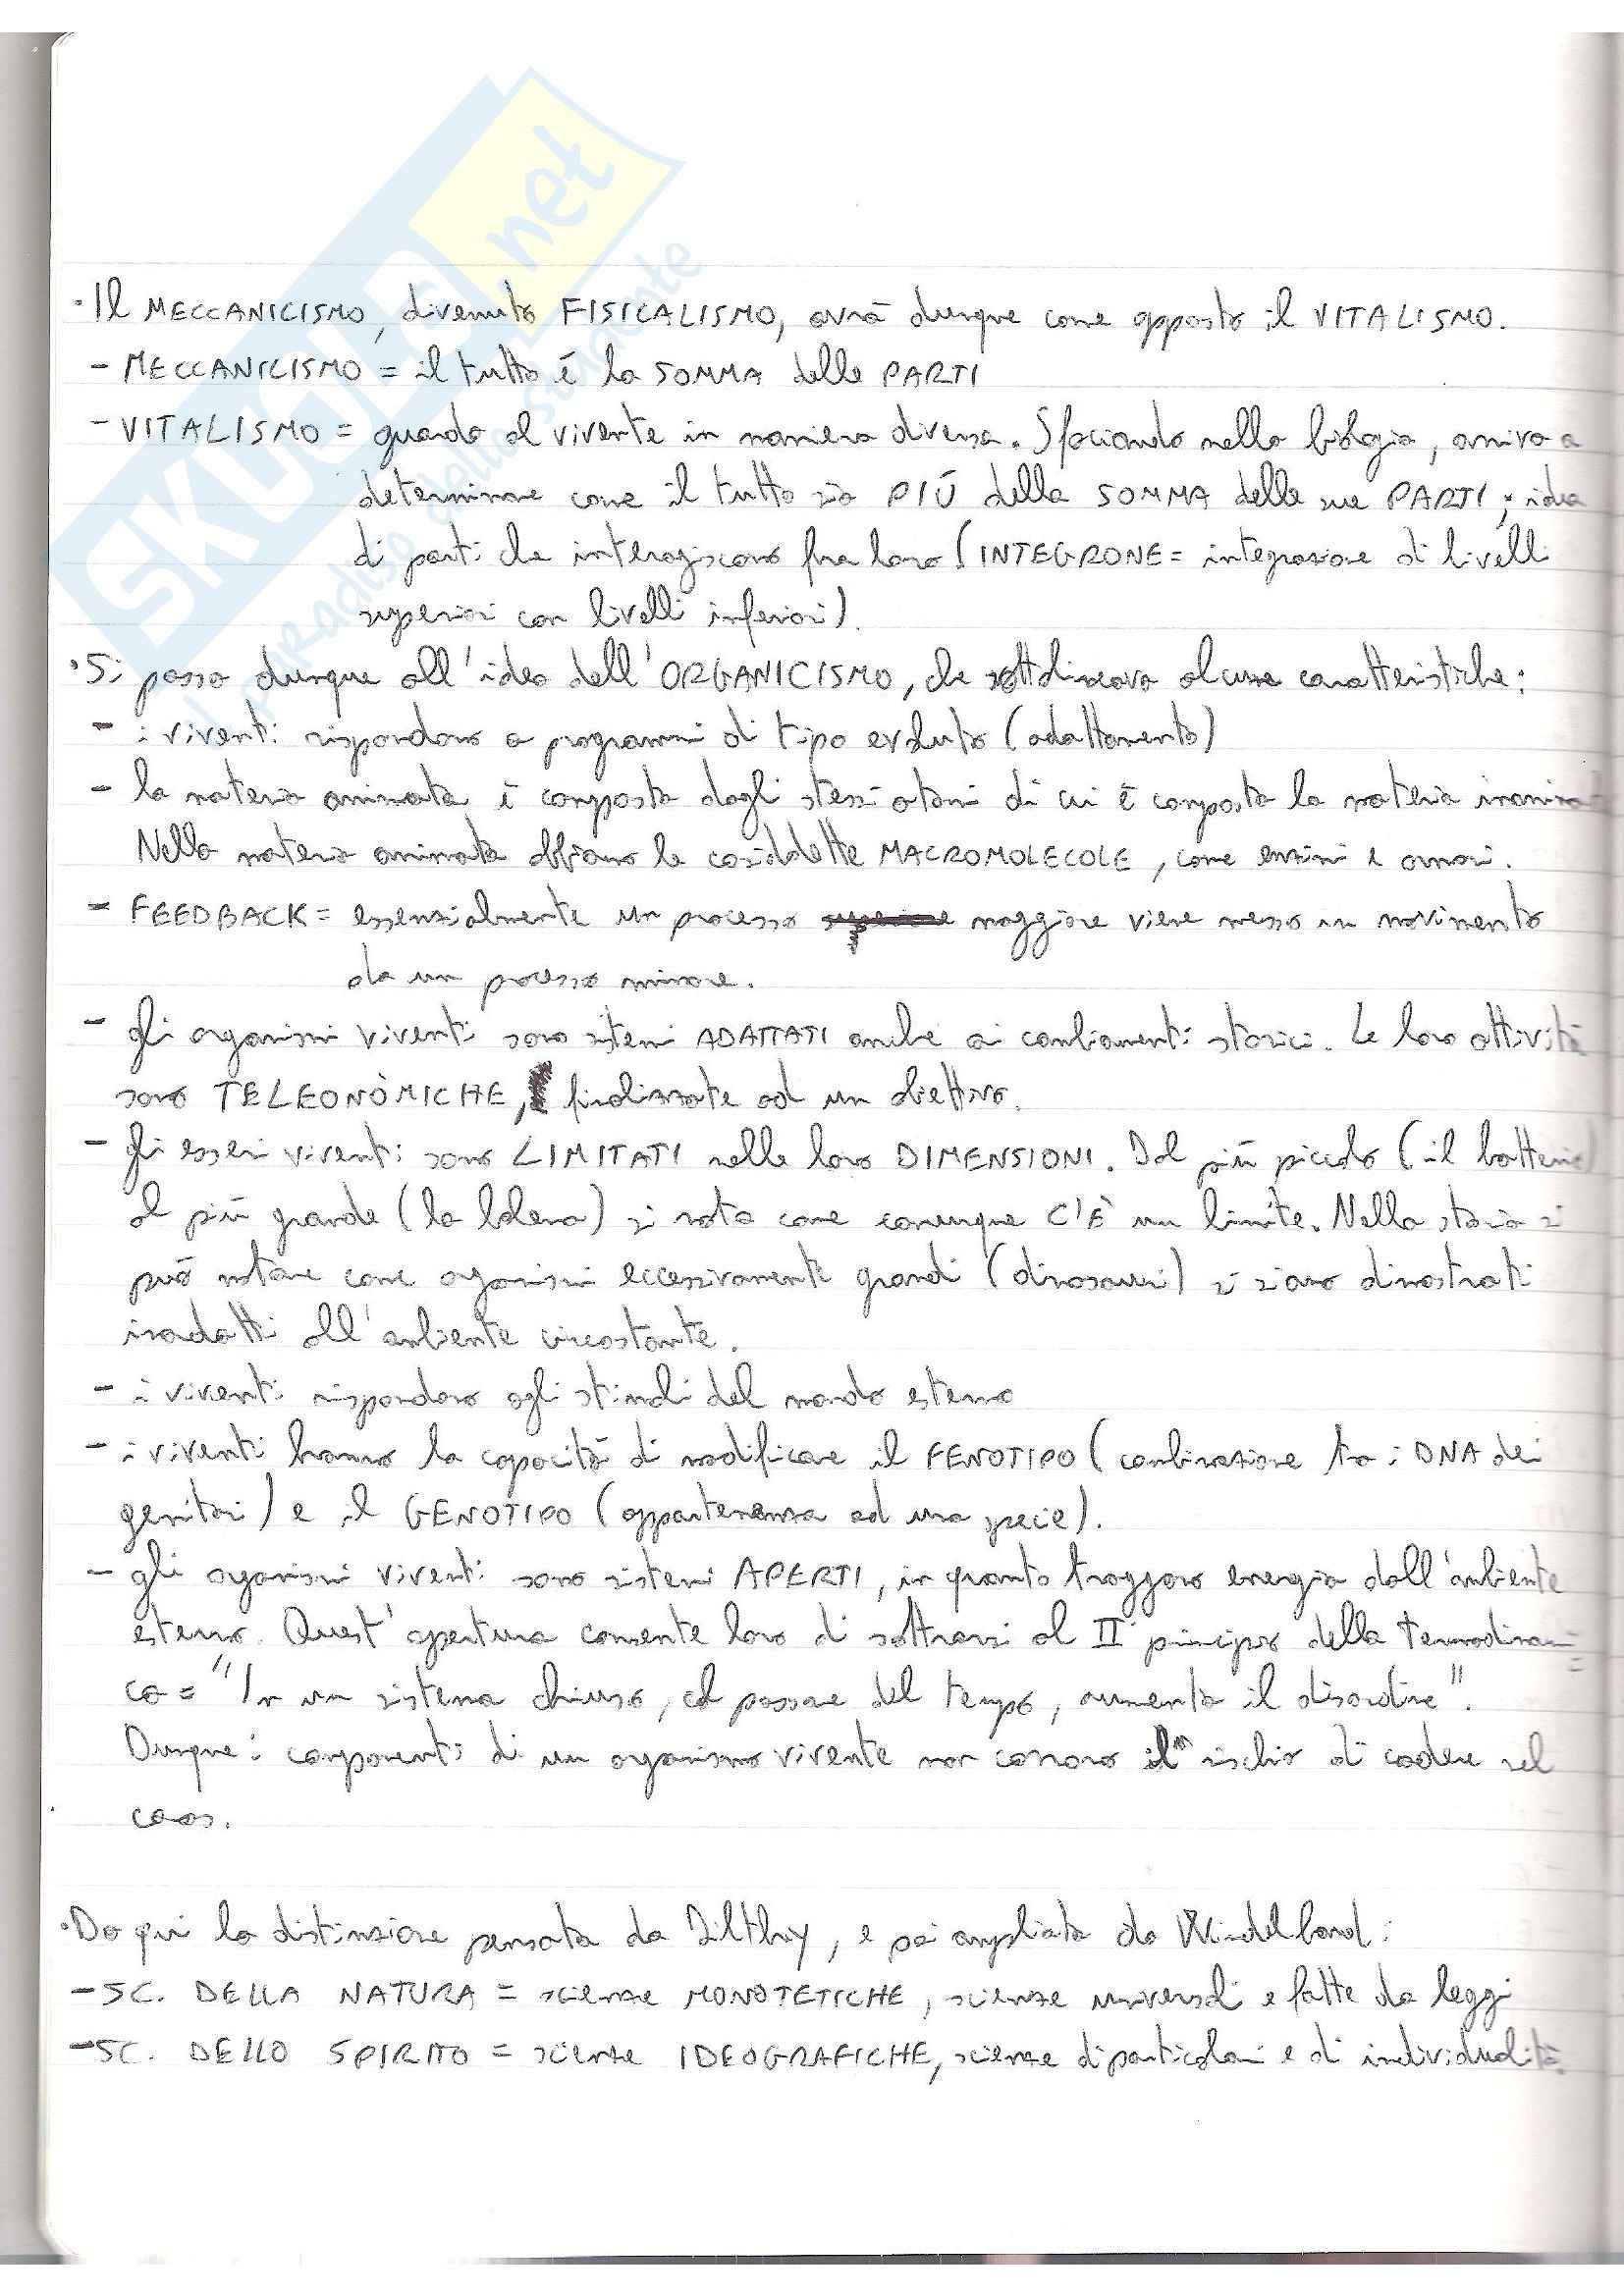 SKUOLA.net
PARADISO dello studente
·Il MECCANICISMO, divenuto FISICALISMO, avrà dunque come opposto il VITALISMO.
- MECCANICISMO = il tutto è la SOMMA delle PARTI
- VITALISMO = guarda al vivente in maniera diversa. Sfociando nella biologia, arriva a
determinare come il tutto sia PIÙ della SOMMA delle sue PARTI; idea
di parti che interagiscono fra loro (INTEGRONE = integrazione di livelli
superiori con livelli inferiori).
·Si passa dunque all'idea dell'ORGANICISMO, che sottolineava alcune caratteristiche:
- i viventi rispondono a programmi di tipo evoluto (adattamento)
- la materia animata è composta dagli stessi atomi di cui è composta la materia
Nella materia animata abbiamo le cosiddette MACROMOLECOLE, come enzimi e ormoni.
- FEEDBACK = essenzialmente un processo maggiore viene messo in movimento
da un processo minore.
- gli organismi viventi sono sistemi ADATTATI anche ai cambiamenti storici. Le loro attività
sono TELEONÒMICHE, finalizzate ad un obiettivo.
- gli esseri viventi sono LIMITATI nelle loro DIMENSIONI. Dal più piccolo (il batterio)
al più grande (la balena) si nota come comunque C'È un limite. Nella storia si
può notare come organismi eccessivamente grandi (dinosauri) si siano dimostrati
inadatti all'ambiente circostante.
- i viventi rispondono agli stimoli del mondo esterno
- i viventi hanno la capacità di modificare il FENOTIPO (combinazione tra i DNA dei
genitori) e il GENOTIPO (appartenenza ad una specie).
- gli organismi viventi sono sistemi APERTI, in quanto traggono energia dall'ambiente
esterno. Quest'apertura consente loro di sottrarsi al II principio della termodinami=
ca = "In un sistema chiuso, col passare del tempo, aumenta il disordine".
Dunque i componenti di un organismo vivente non corrono il rischio di cadere nel
caos.
·Da qui la distinzione pensata da Dilthey, e poi ampliata da Windelband:
- SC. DELLA NATURA = scienze MONOTETICHE, scienze universali e fatte da leggi
- SC. DELLO SPIRITO = scienze IDEOGRAFICHE, scienze di particolari e di individualità.